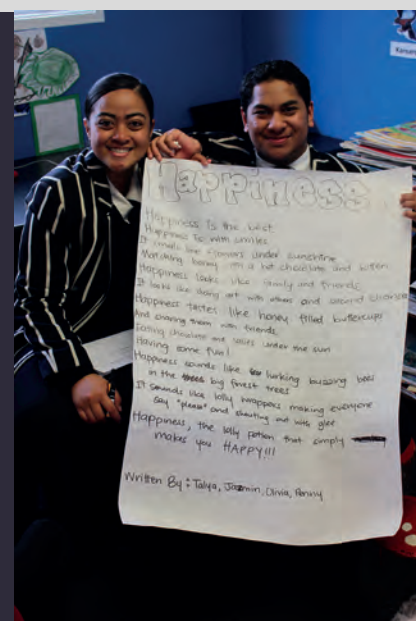 Happiness
Happiness is the best
Happiness is with smiles
It smells like flowers under sunshine
Matching bunny with a hot chocolate and
Happiness looks like family and friends
It looks like doing art with others and around
Happiness tastes like honey filled buttercups
And sharing them with friends.
Eating chocolate and lollies under the sun
Having some fun!
Happiness sounds like lurking buzzing bees
in the big finest trees
It sounds like lolly wrappers making everyone
say "please" and shouting out with glee
Happiness, the lolly potion that simply
makes you HAPPY!!!
Written By: Talya, Jazmin, Olivia, Penny